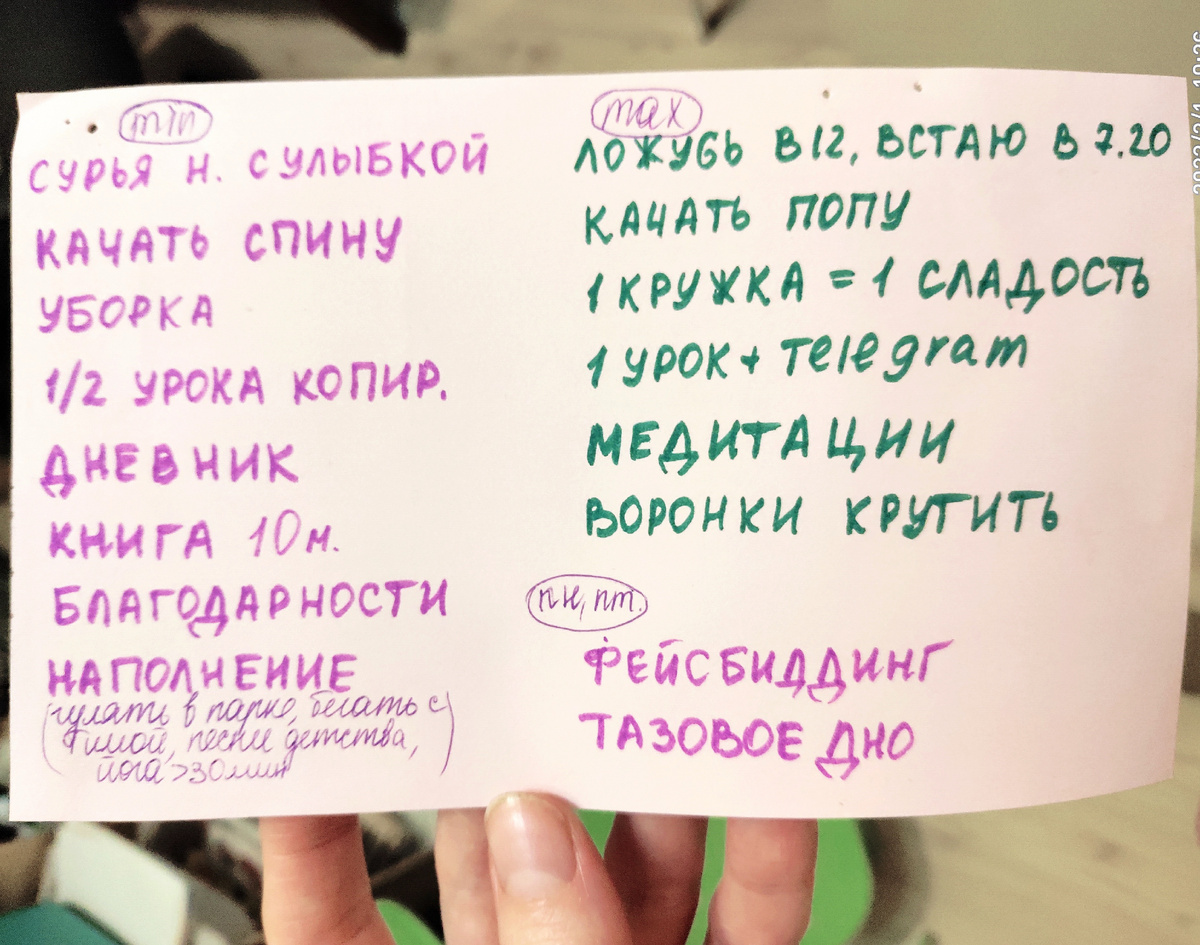 min
СУРЬЯ Н. С УЛЫБКОЙ
КАЧАТЬ СПИНУ
УБОРКА
1/2 УРОКА КОПИР.
ДНЕВНИК
КНИГА 10м.
БЛАГОДАРНОСТИ
НАПОЛНЕНИЕ
(гулять в парке, бегать с
Тимой, песни детства,
йога >30 мин)
max
ЛОЖУСЬ В 12, ВСТАЮ В 7.20
КАЧАТЬ ПОПУ
1 КРУЖКА = 1 СЛАДОСТЬ
1 УРОК + Telegram
МЕДИТАЦИИ
ВОРОНКИ КРУТИТЬ
пн, пт.
ФЕЙСБИДДИНГ
ТАЗОВОЕ ДНО